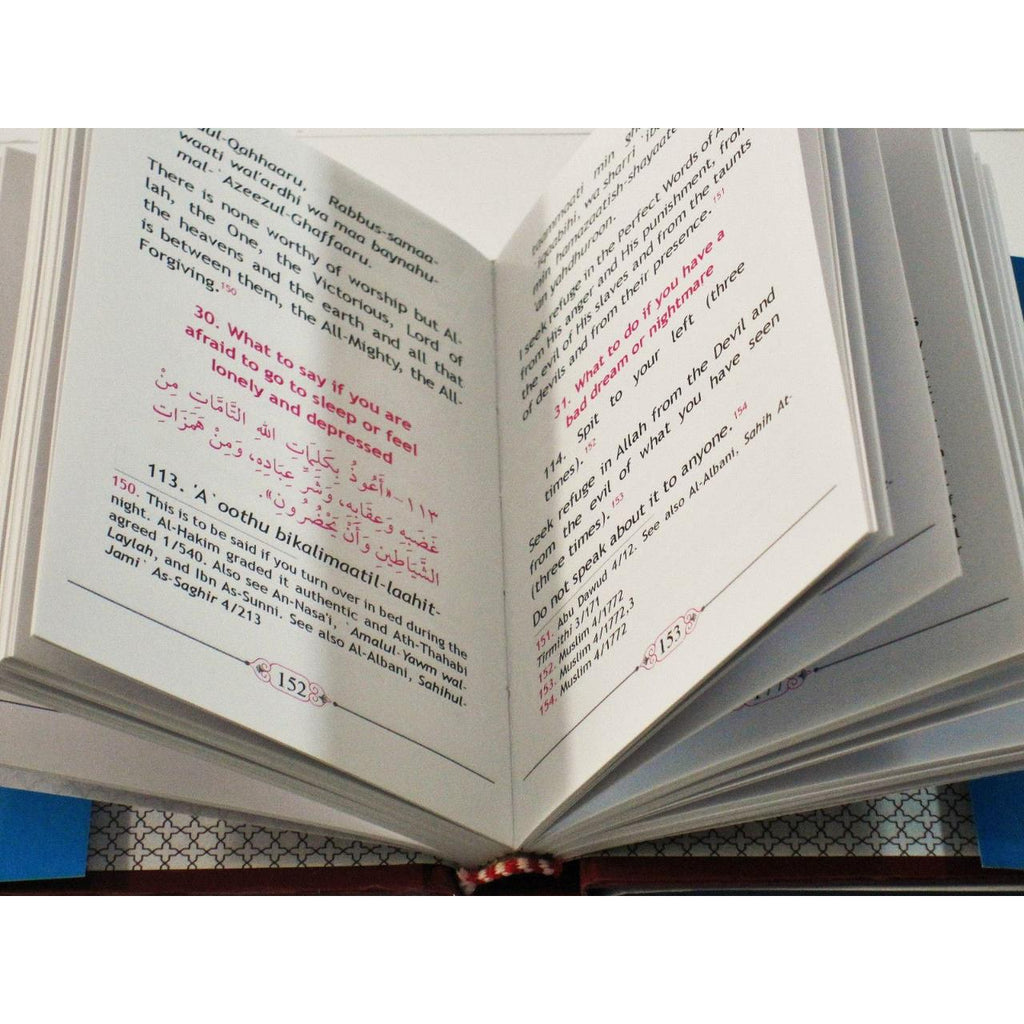 Qahhaaru, Rabbus-samaa-
waati wal'ardhi wa maa baynahu-
mal-`Azeezul-Ghaffaaru.
There is none worthy of worship but Al-
lah, the One, the Victorious, Lord of
the heavens and the earth and all that
is between them, the All-Mighty, the All-
Forgiving.150
30. What to say if you are
afraid to go to sleep or feel
lonely and depressed
١١٣-«أَعُوذُ بِكَلِمَاتِ اللهِ التَّامَّاتِ مِنْ
غَضَبِهِ وَعِقَابِهِ، وَشَرِّ عِبَادِهِ، وَمِنْ هَمَزَاتِ
الشَّيَاطِينِ وَأَنْ يَحْضُرُونِ».
113. 'A`oothu bikalimaatil-laahit-
150. This is to be said if you turn over in bed during the
night. Al-Hakim graded it authentic and Ath-Thahabi
agreed 1/540. Also see An-Nasa'i, `Amalul-Yawm wal-
Laylah, and Ibn As-Sunni. See also Al-Albani, Sahihul-
Jami` As-Saghir 4/213
152
min
wa sharri
min hamazaatish-shayaate
yahdhuroon.
I seek refuge in the Perfect Words of
from His anger and His punishment, from
the evil of His slaves and from the taunts
of devils and from their presence.151
31. What to do if you have a
bad dream or nightmare
114. Spit to your left (three
times).152
Seek refuge in Allah from the Devil and
from the evil of what you have seen
(three times).153
Do not speak about it to anyone.154
151. Abu Dawud 4/12. See also Al-Albani, Sahih At-
Tirmithi 3/171
152. Muslim 4/1772
153. Muslim 4/1772,3
154. Muslim 4/1772
153
177